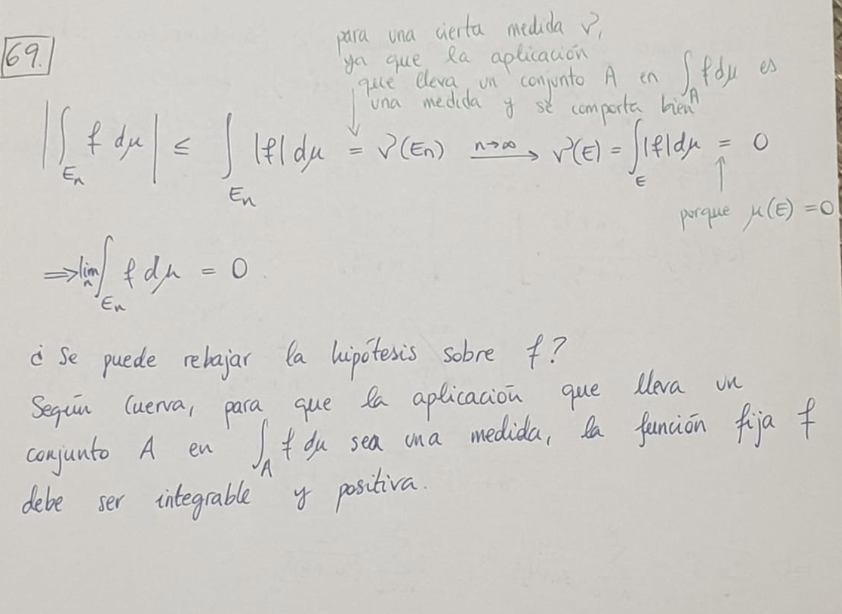 69.
para una cierta medida ν,
ya que la aplicación
que lleva un conjunto A en ∫_A f dμ es
una medida y se comporta bien
|∫_{E_n} f dμ| ≤ ∫_{E_n} |f| dμ = ν(E_n) →^{n→∞} ν(E) = ∫_E |f| dμ = 0
porque μ(E) = 0
⟹ lim_n ∫_{E_n} f dμ = 0.
¿ Se puede rebajar la hipótesis sobre f?
Según Cuerva, para que la aplicación que lleva un
conjunto A en ∫_A f dμ sea una medida, la función fija f
debe ser integrable y positiva.